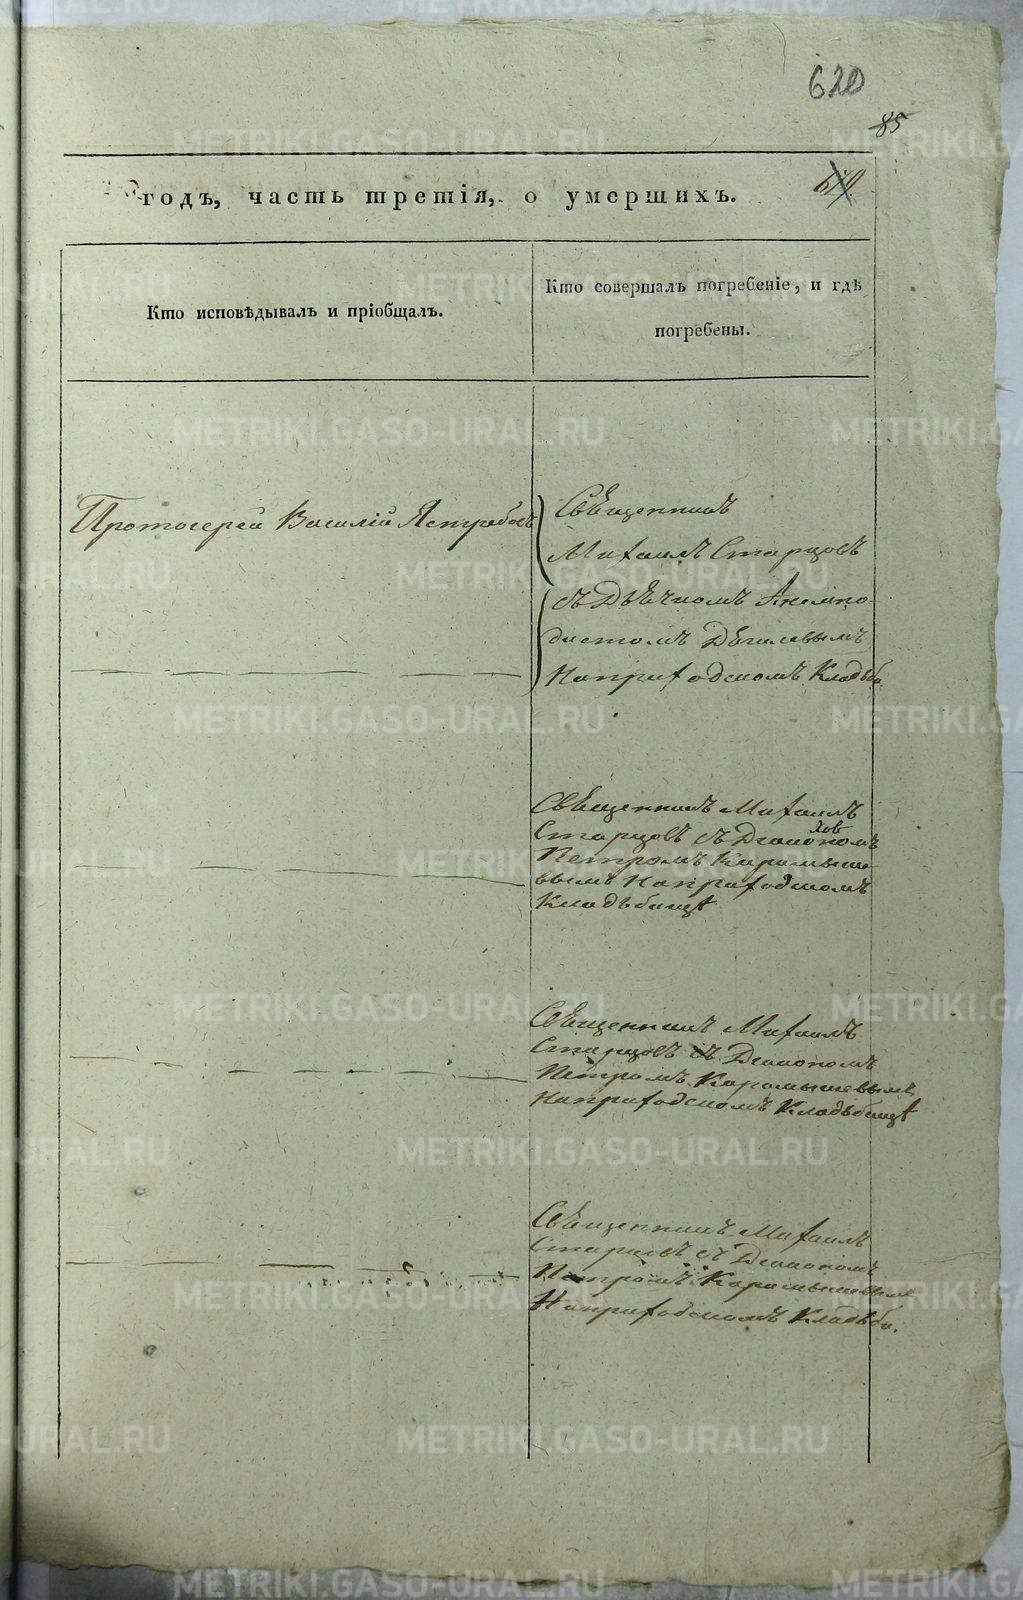 620
85
619
годъ, часть третія, о умершихъ.
Кто исповѣдывалъ и пріобщалъ.
Кто совершалъ погребеніе, и гдѣ
погребены.
Протоіерей Василій Ястребовъ
Священникъ
Михаилъ Старцовъ
съ Дьячкомъ Анемпо
дистомъ
Наприходскомъ Кладьби.
Священникъ Михаилъ
Старцовъ съ Диакономъ
Петромъ Карамыше
вымъ Наприходскомъ
Кладьбищѣ
Священникъ Михаилъ
Старцовъ съ Диакономъ
Петромъ Карамышевымъ
Наприходскомъ Кладьбищѣ
Священникъ Михаилъ
Старцовъ съ Диакономъ
Петромъ Карамышевымъ
Наприходскомъ Кладьби.
METRIKI.GASO-URAL.RU